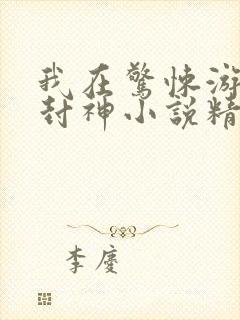 我在驚悚游
封神小說精
李慶